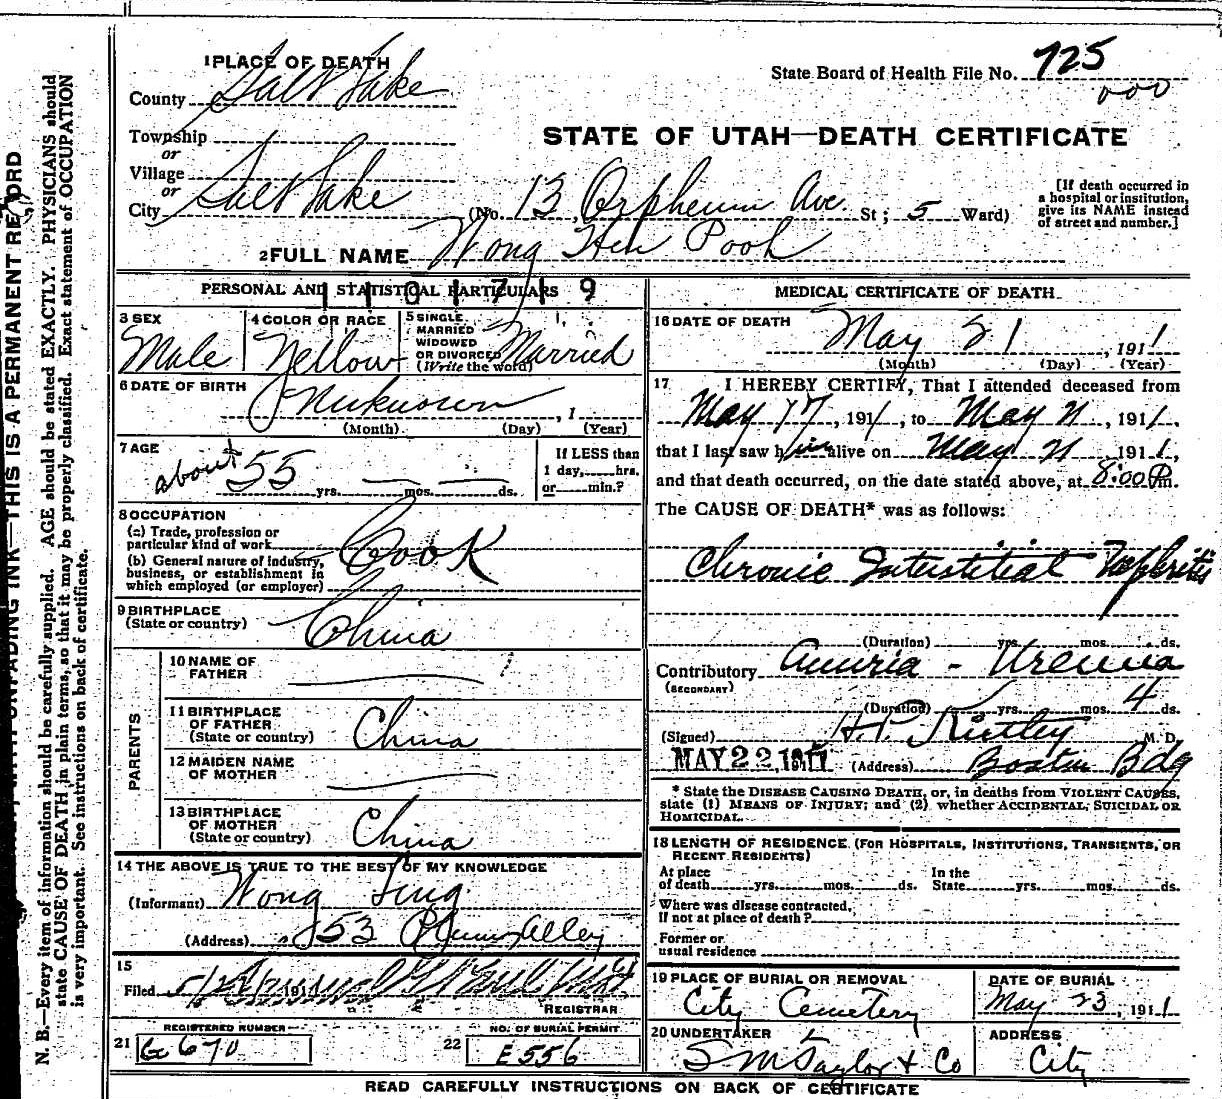 1 PLACE OF DEATH
State Board of Health File No. 725
000
County Salt Lake
STATE OF UTAH—DEATH CERTIFICATE
Township
or
Village
or
City Salt Lake (No. 13, Orpheum Ave. St; 5 Ward)
[If death occurred in
a hospital or institution,
give its NAME instead
of street and number.]
2 FULL NAME Wong Hen Pooh
PERSONAL AND STATISTICAL PARTICULARS
1101719
3 SEX
Male
4 COLOR OR RACE
Yellow
5 SINGLE
MARRIED
WIDOWED
OR DIVORCED
(Write the word)
Married
6 DATE OF BIRTH
Unknown, 1
(Month) (Day) (Year)
7 AGE
about 55 yrs. — mos. — ds.
If LESS than
1 day, hrs.
or min.?
8 OCCUPATION
(a) Trade, profession or
particular kind of work
(b) General nature of industry,
business, or establishment in
which employed (or employer)
Cook
9 BIRTHPLACE
(State or country)
China
PARENTS
10 NAME OF
FATHER
11 BIRTHPLACE
OF FATHER
(State or country)
China
12 MAIDEN NAME
OF MOTHER
13 BIRTHPLACE
OF MOTHER
(State or country)
China
14 THE ABOVE IS TRUE TO THE BEST OF MY KNOWLEDGE
(Informant) Wong Sing
(Address) 53 Plum Alley
15
Filed 5/22/ 191
REGISTRAR
REGISTERED NUMBER
21 G 670
NO. OF BURIAL PERMIT
22 E 556
MEDICAL CERTIFICATE OF DEATH
16 DATE OF DEATH
May 21, 1911
(Month) (Day) (Year)
17 I HEREBY CERTIFY, That I attended deceased from
May 17, 1911, to May 21, 1911,
that I last saw him alive on May 21 1911,
and that death occurred, on the date stated above, at 8:00 P.m.
The CAUSE OF DEATH* was as follows:
Chronic Interstitial Nephritis
(Duration) yrs. mos. ds.
Contributory Anuria - Uremia
(SECONDARY)
(Duration) yrs. mos. 4 ds.
(Signed) H.P. Kirtley M.D.
MAY 22 1911 (Address) Boston Bdg
* State the DISEASE CAUSING DEATH, or, in deaths from VIOLENT CAUSES,
state (1) MEANS OF INJURY; and (2) whether ACCIDENTAL, SUICIDAL OR
HOMICIDAL.
18 LENGTH OF RESIDENCE (FOR HOSPITALS, INSTITUTIONS, TRANSIENTS, OR
RECENT RESIDENTS)
At place
of death yrs. mos. ds.
In the
State yrs. mos. ds.
Where was disease contracted,
If not at place of death?
Former or
usual residence
19 PLACE OF BURIAL OR REMOVAL
City Cemetery
DATE OF BURIAL
May 23, 1911
20 UNDERTAKER
S M Taylor & Co
ADDRESS
City
READ CAREFULLY INSTRUCTIONS ON BACK OF CERTIFICATE
UNFADING INK—THIS IS A PERMANENT RECORD
N. B.—Every item of information should be carefully supplied. AGE should be stated EXACTLY. PHYSICIANS should
state CAUSE OF DEATH in plain terms, so that it may be properly classified. Exact statement of OCCUPATION
is very important. See instructions on back of certificate.